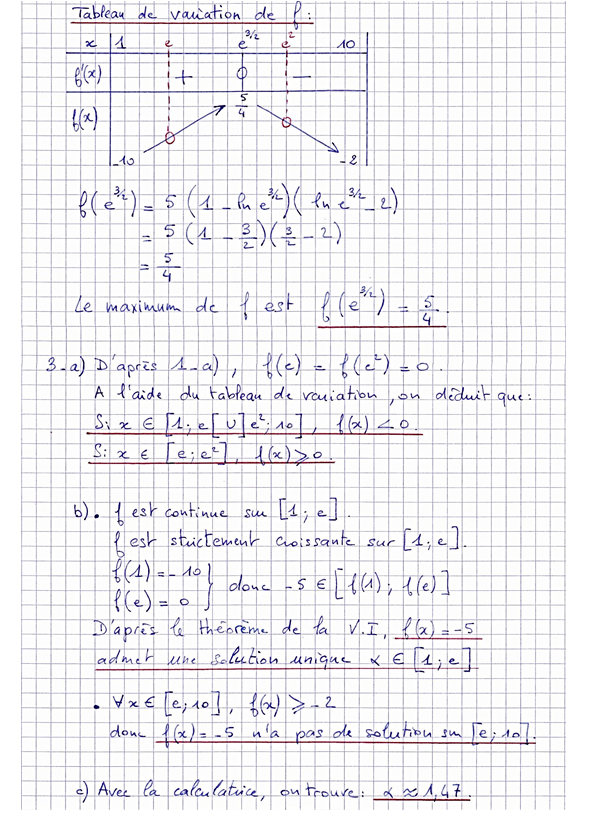 Tableau de variation de f :
x 1 e e^{3/2} e² 10
f'(x) + 0 −
f(x) -10 0 5/4 0 -2
f(e^{3/2}) = 5 (1 - ln e^{3/2})( ln e^{3/2} - 2)
= 5 (1 - 3/2)(3/2 - 2)
= 5/4
Le maximum de f est f(e^{3/2}) = 5/4.
3-a) D'après 1-a), f(e) = f(e²) = 0.
A l'aide du tableau de variation, on déduit que:
Si x ∈ [1; e[ ∪ ]e²; 10], f(x) < 0.
Si x ∈ [e; e²], f(x) ⩾ 0.
b) • f est continue sur [1; e].
f est strictement croissante sur [1; e].
f(1) = -10
f(e) = 0 } donc -5 ∈ [f(1); f(e)]
D'après le théorème de la V.I, f(x) = -5
admet une solution unique α ∈ [1; e]
• ∀x ∈ [e; 10], f(x) ⩾ -2
donc f(x) = -5 n'a pas de solution sur [e; 10].
c) Avec la calculatrice, on trouve: α ≈ 1,47.